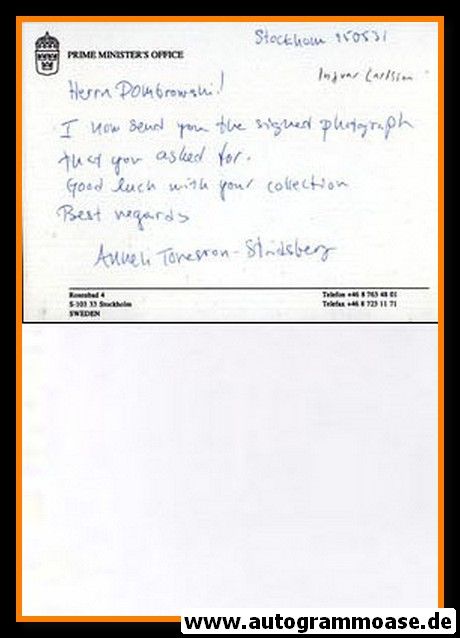 Stockholm 950531
PRIME MINISTER'S OFFICE
Ingvar Carlsson
Herrn Dombrowski!
I now send you the signed photograph
that you asked for.
Good luck with your collection
Best regards
Anneli -Stridsberg
Rosenbad 4
S-103 33 Stockholm
SWEDEN
Telefon +46 8 763 48 01
Telefax +46 8 723 11 71
www.autogrammoase.de